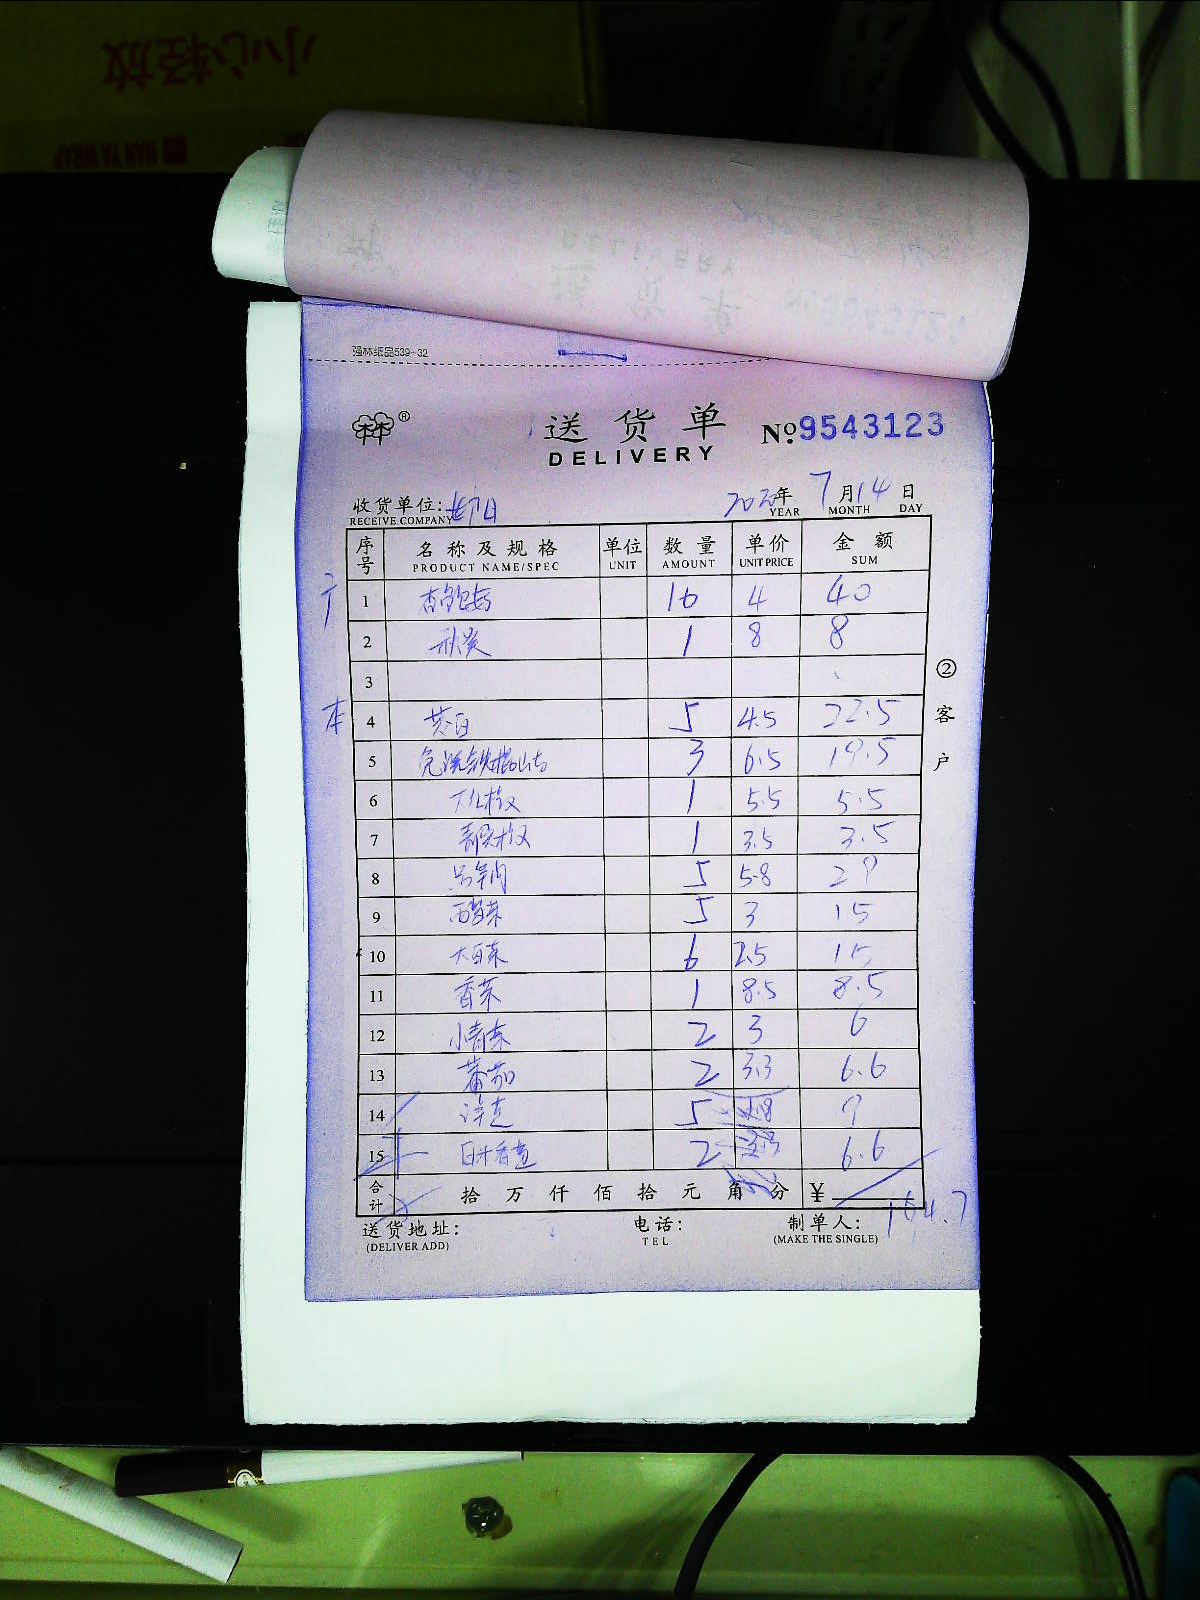 小心轻放
NAN YA WRAP
强林纸品539-32
林®
送货单
DELIVERY
№9543123
收货单位:
RECEIVE COMPANY
2020年 7月14日
YEAR MONTH DAY
序号 名称及规格 单位 数量 单价 金额
PRODUCT NAME/SPEC UNIT AMOUNT UNIT PRICE SUM
1 杏鲍菇 10 4 40
2 秋葵 1 8 8
3
本
4 茭白 5 4.5 22.5
5 3 6.5 19.5
6 1 5.5 5.5
7 1 3.5 3.5
8 5 5.8 29
9 西芹菜 5 3 15
10 大白菜 6 2.5 15
11 香菜 1 8.5 8.5
12 小青菜 2 3 6
13 蕃茄 2 3.3 6.6
14 洋芝 5 1.8 9
15 白汁香重 2 3.3 6.6
合计 拾万仟佰拾元角分 ¥
164.7
送货地址: 电话: 制单人:
(DELIVER ADD) TEL (MAKE THE SINGLE)
②客户